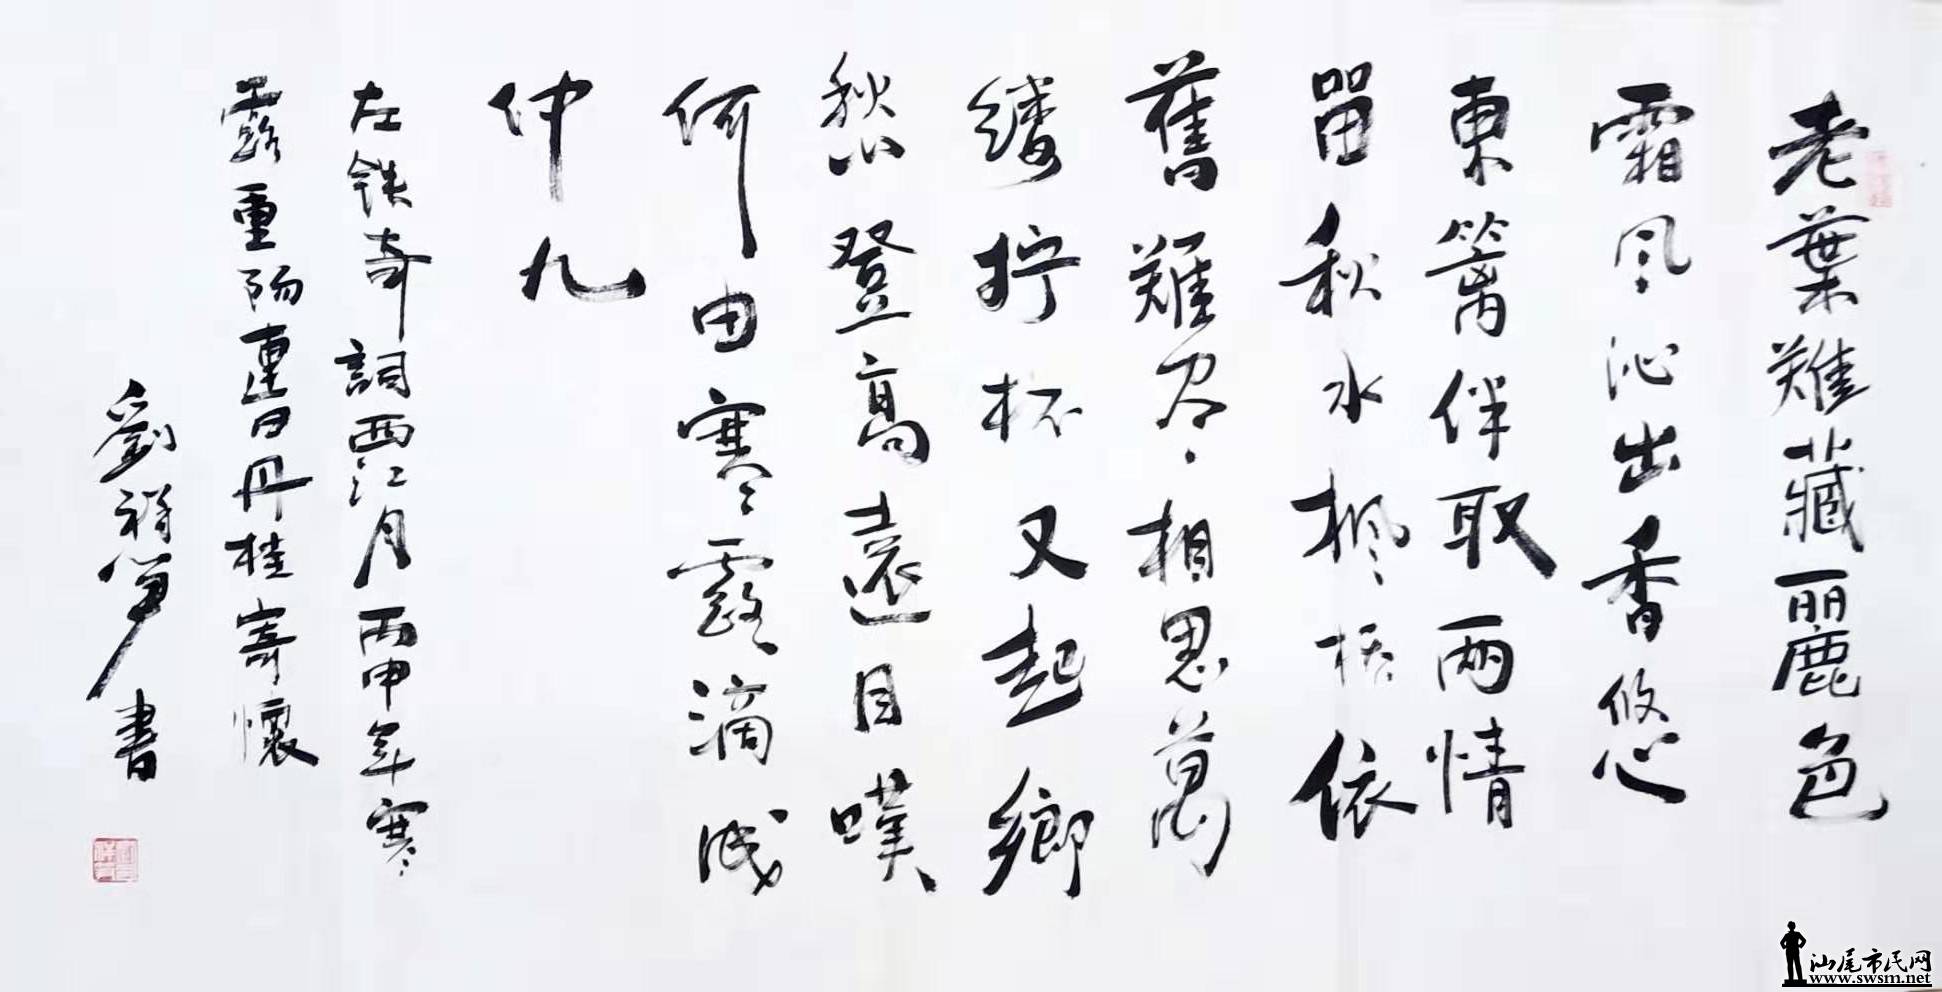 老葉難藏麗色
霜风沁出香悠
東篱伴取兩情
畱秋水枫桥依
舊難尽相思萬
缕拧杯又起鄉
愁登高遠目嘆
何由寒露滴成
仲九
左铁奇詞西江月丙申年寒
露重阳連日丹桂寄懷
劉祥笋書
汕尾市民网
www.swsm.net